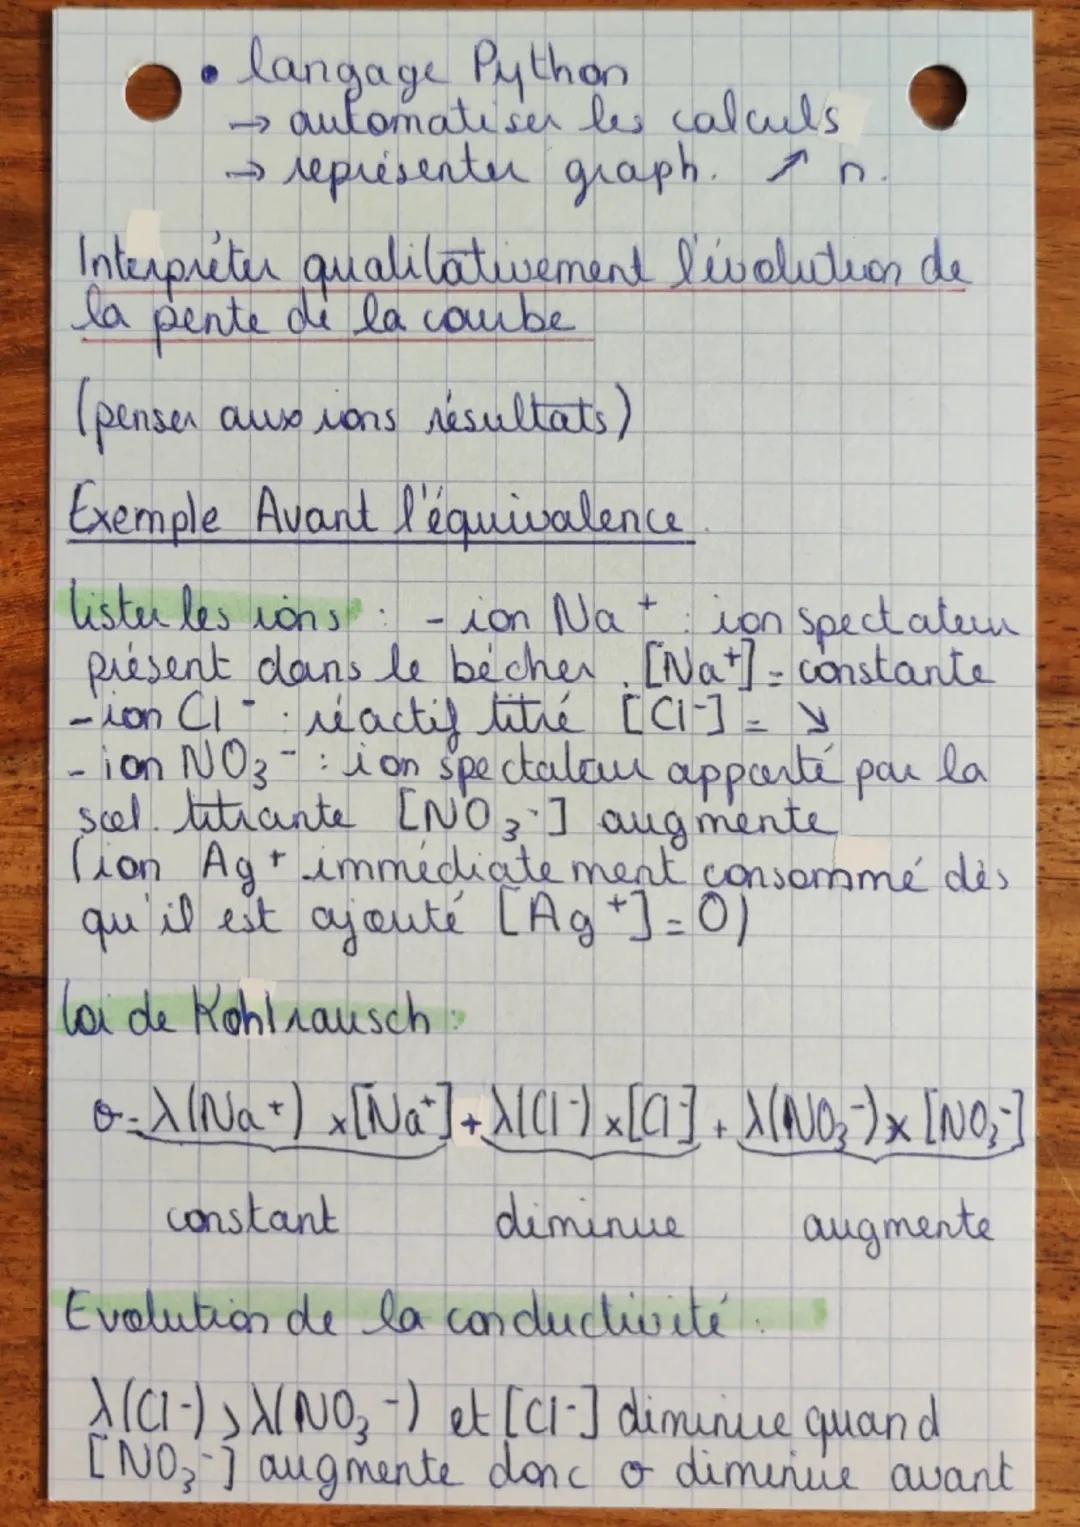 • langage Python
→ automatiser les calculs
→ représenter graph. ↗ n.
Interpréter qualitativement l'évolution de
la pente de la courbe
(penser aux ions résultats)
Exemple Avant l'équivalence.
lister les ions : - ion Na⁺ : ion spectateur
présent dans le bécher. [Na⁺] = constante
- ion Cl⁻ : réactif titré [Cl⁻] = ↘
- ion NO₃⁻ : ion spectateur apporté par la
sol. titrante [NO₃⁻] augmente
(ion Ag⁺ immédiatement consommé dès
qu'il est ajouté [Ag⁺] = 0)
loi de Kohlrausch :
σ = λ(Na⁺) × [Na⁺] + λ(Cl⁻) × [Cl⁻] + λ(NO₃⁻) × [NO₃⁻]
constant diminue augmente
Evolution de la conductivité :
λ(Cl⁻) > λ(NO₃⁻) et [Cl⁻] diminue quand
[NO₃⁻] augmente donc σ diminue avant